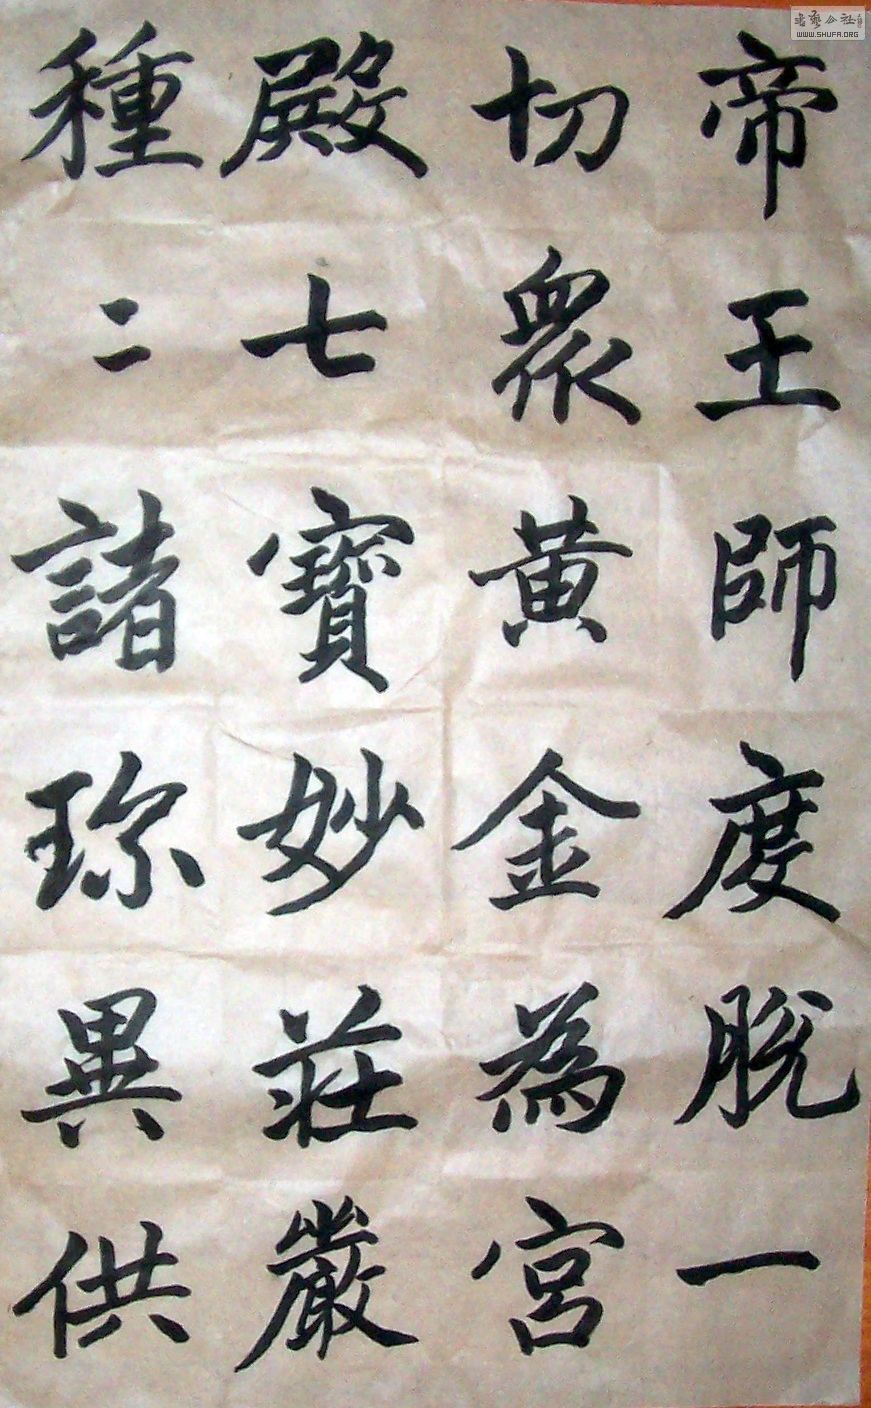 帝王師度脱一
切衆黄金為宮
殿七寶妙莊嚴
種二諸珎異供
書藝公社
WWW.SHUFA.ORG